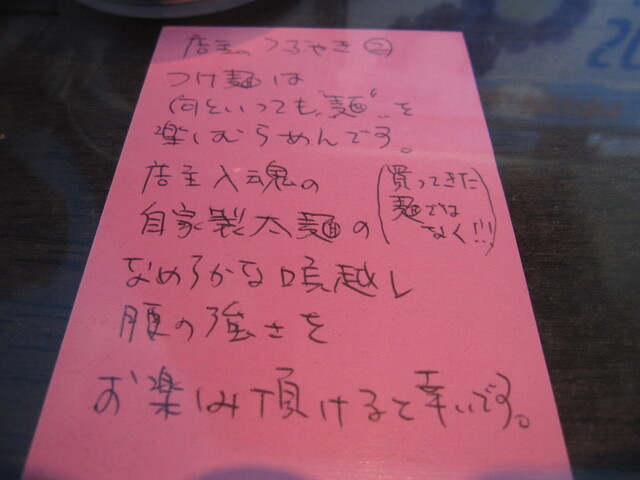 店主のつぶやき②
つけ麺は
何といっても、"麺"を
楽しむらーめんです。
店主入魂の
自家製太麺の
(買ってきた
麺では
なく!!!)
なめらかな喉越し
腰の強さを
お楽しみ頂けると幸いです。
20